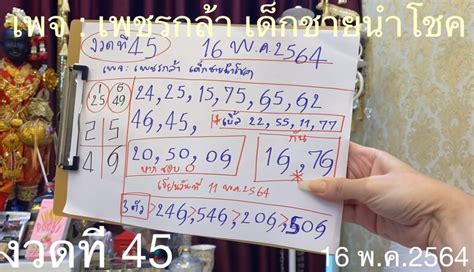 เพจ : เพชรกล้า เด็กชายนำโชค
งวดที่ 45 16 พ.ค. 2564
เพจ: เพชรกล้า เด็กชายนำโชค
1 6
25 49
24, 25, 15, 75, 65, 62
46, 45, + เบิ้ล 22, 55, 11, 77
2 5
4 6
20, 50, 06
หากชอบ 0
กัน
16, 76
*
เขียนวันที่ 11 พ.ค. 2564
3 ตัว > 246 > 546 > 206 > 506
งวดที่ 45
16 พ.ค.2564